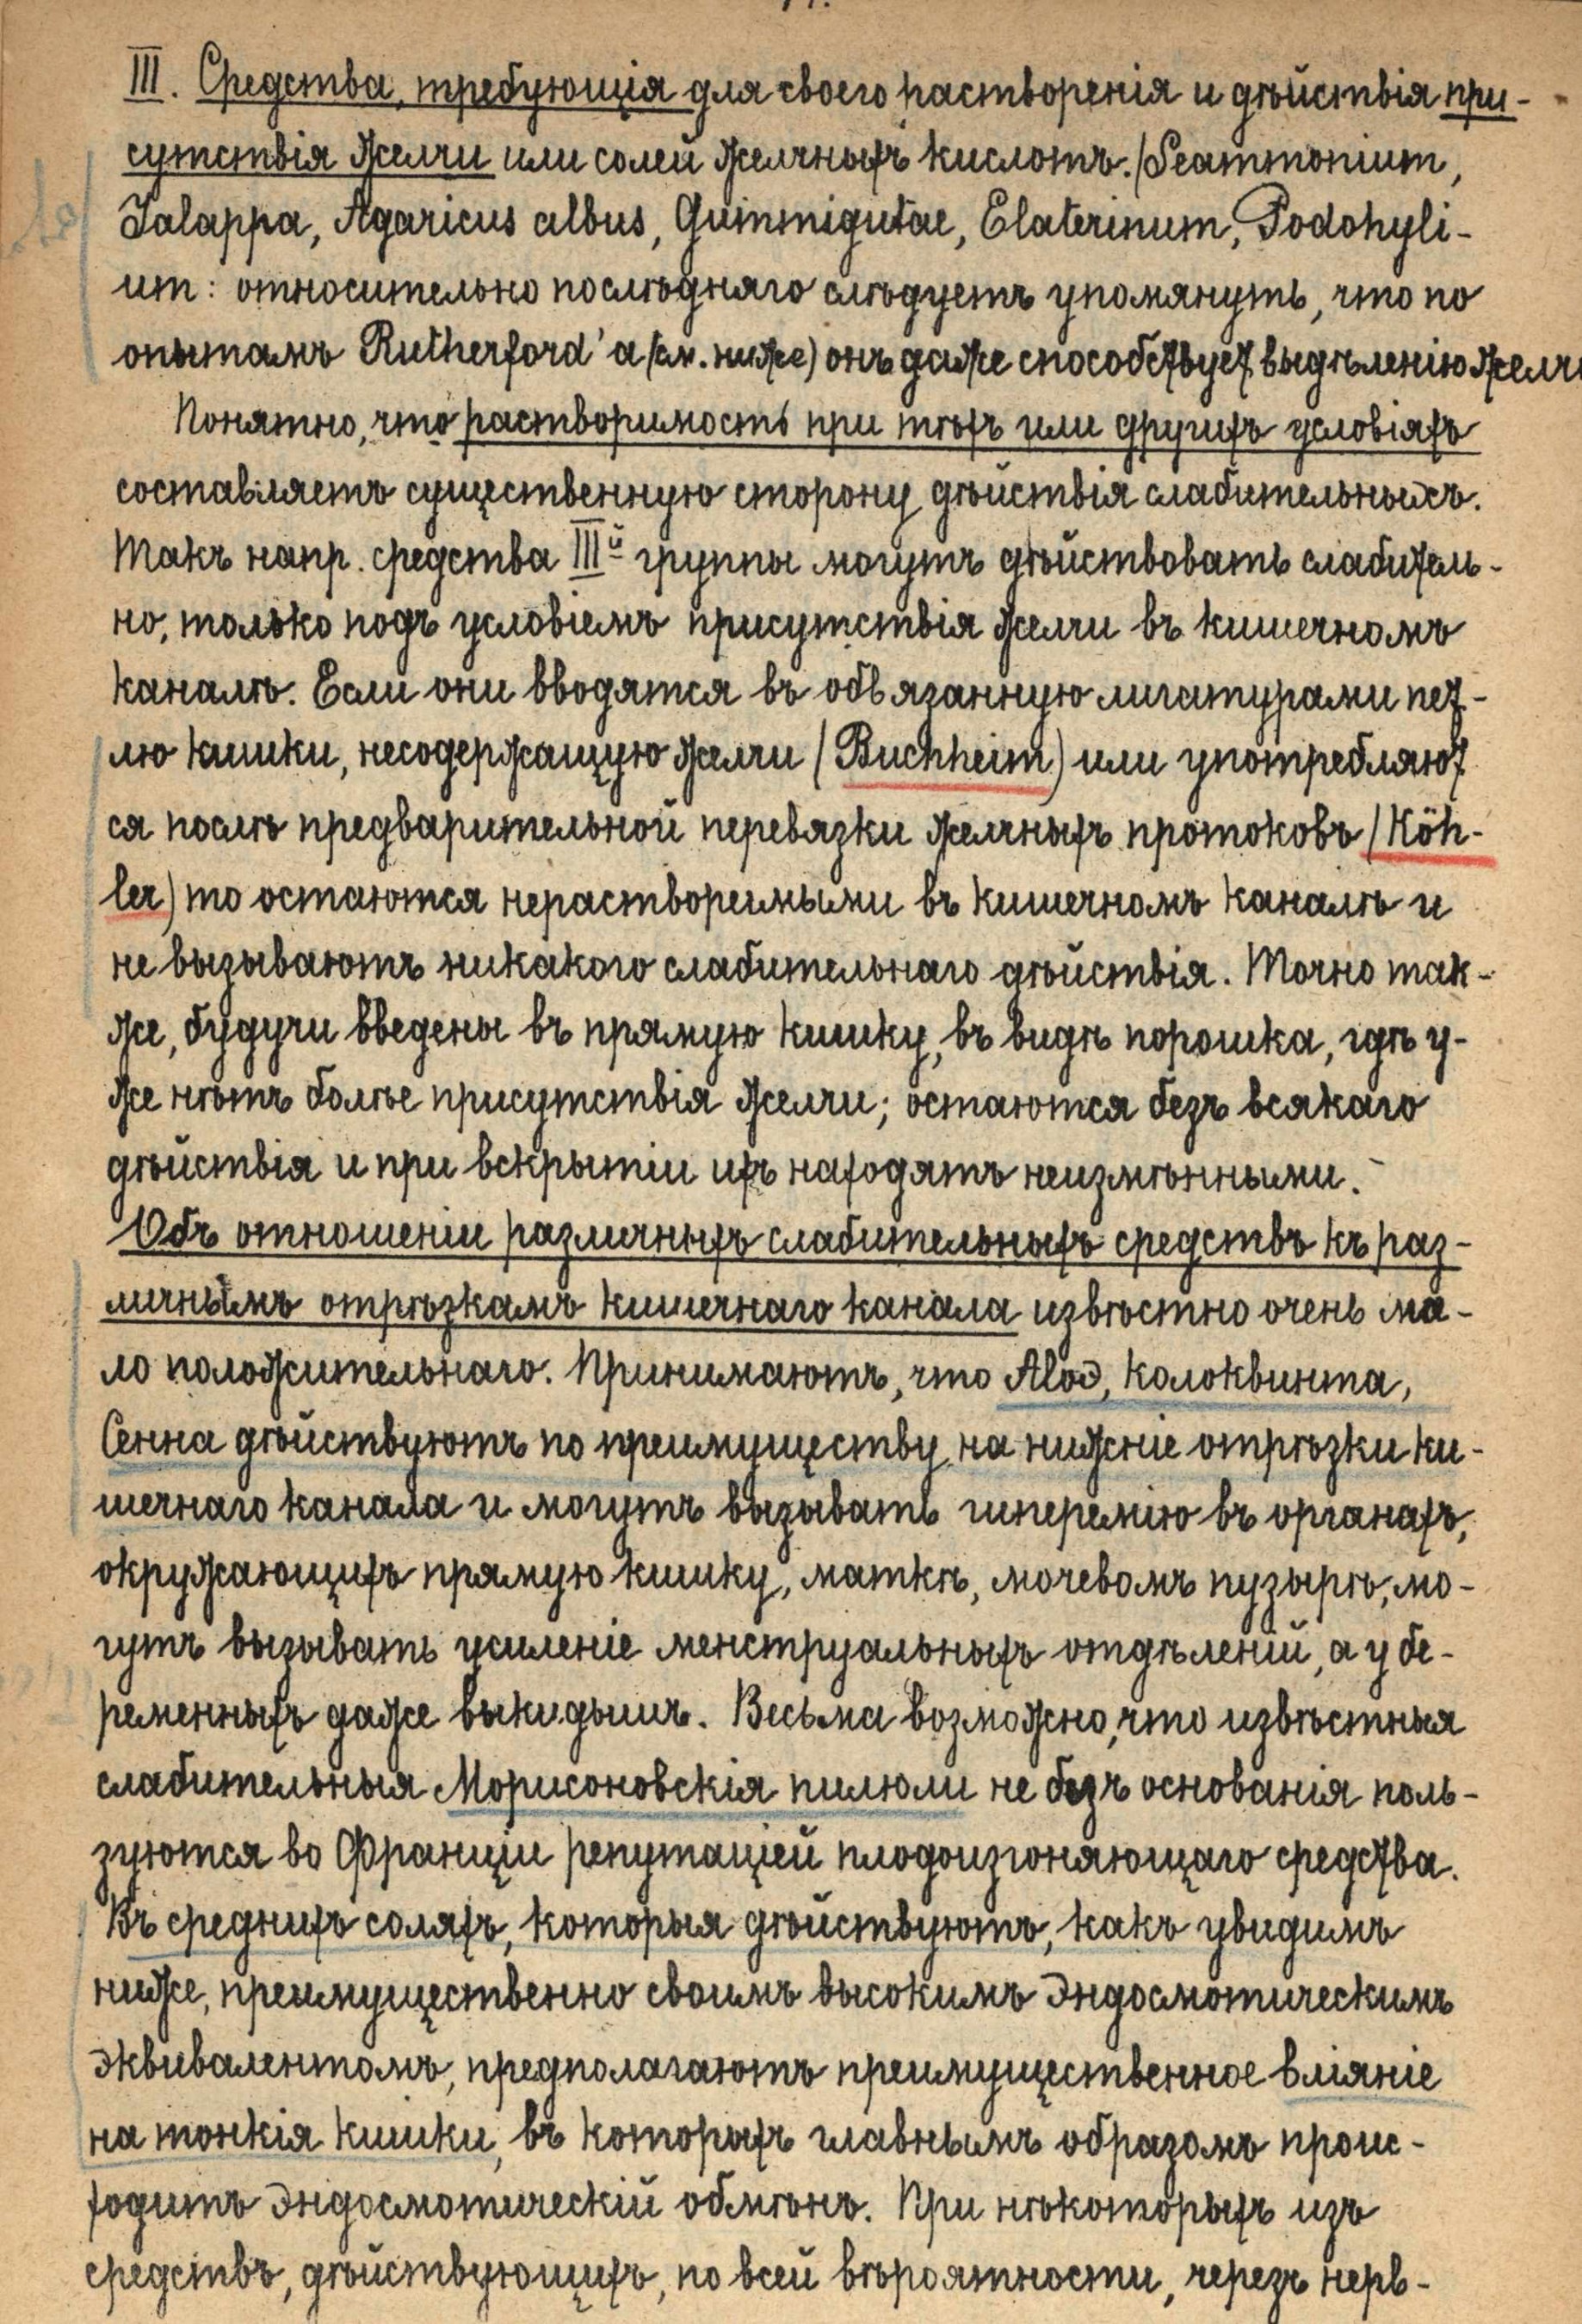 III. Средства, требующія для своего растворенія и дѣйствія при-
сутствія желчи или солей желчныхъ кислотъ. (Scammonium,
Jalappa, Agaricus albus, Gummigutae, Elaterinum, Podohyli-
um: относительно послѣдняго слѣдуетъ упомянуть, что по
опытамъ Rutherford'a (см. ниже) онъ даже способствует выдѣленію желчи
Понятно, что растворимость при тѣхъ или другихъ условіяхъ
составляетъ существенную сторону дѣйствія слабительныхъ.
Такъ напр. средства IIIй группы могутъ дѣйствовать слабитель-
но, только подъ условіемъ присутствія желчи въ кишечномъ
каналѣ. Если они вводятся въ обвязанную лигатурами пет-
лю кишки, несодержащую желчи (Buchheim) или употребляют
ся послѣ предварительной перевязки желчныхъ протоковъ (Köh-
ler) то остаются нерастворимыми въ кишечномъ каналѣ и
не вызываютъ никакого слабительнаго дѣйствія. Точно так-
же, будучи введены въ прямую кишку, въ видѣ порошка, гдѣ у-
же нѣтъ болѣе присутствія желчи; остаются безъ всякаго
дѣйствія и при вскрытіи ихъ находятъ неизмѣнными.
Объ отношеніи различныхъ слабительныхъ средствъ къ раз-
личнымъ отрѣзкамъ кишечнаго канала извѣстно очень ма-
ло положительнаго. Принимаютъ, что Aloэ, колоквинта,
Сенна дѣйствуютъ по преимуществу на нижніе отрѣзки ки-
шечнаго канала и могутъ вызывать гиперемію въ органахъ,
окружающихъ прямую кишку, маткѣ, мочевомъ пузырѣ, мо-
гутъ вызывать усиленіе менструальныхъ отдѣленій, а у бе-
ременныхъ даже выкидышъ. Весьма возможно, что извѣстныя
слабительныя Морисоновскія пилюли не безъ основанія поль-
зуются во Франціи репутаціей плодоизгоняющаго средства.
Въ среднихъ соляхъ, которыя дѣйствуютъ, какъ увидимъ
ниже, преимущественно своимъ высокимъ эндосмотическимъ
эквивалентомъ, предполагаютъ преимущественное вліяніе
на тонкія кишки, въ которыхъ главнымъ образомъ проис-
ходитъ эндосмотическій обмѣнъ. При нѣкоторыхъ изъ
средствъ, дѣйствующихъ, по всей вѣроятности, черезъ нерв-